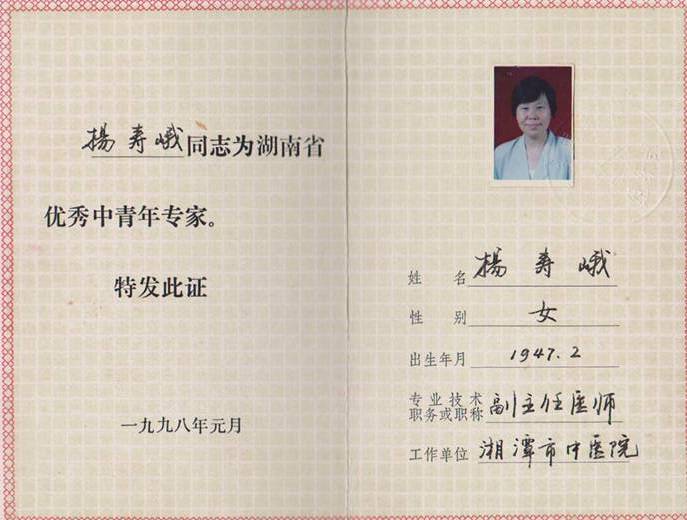 楊寿峨同志为湖南省
优秀中青年专家。
特发此证
一九九八年元月
姓名 楊寿峨
性别 女
出生年月 1947.2
专业技术职务或职称 副主任医师
工作单位 湘潭市中医院